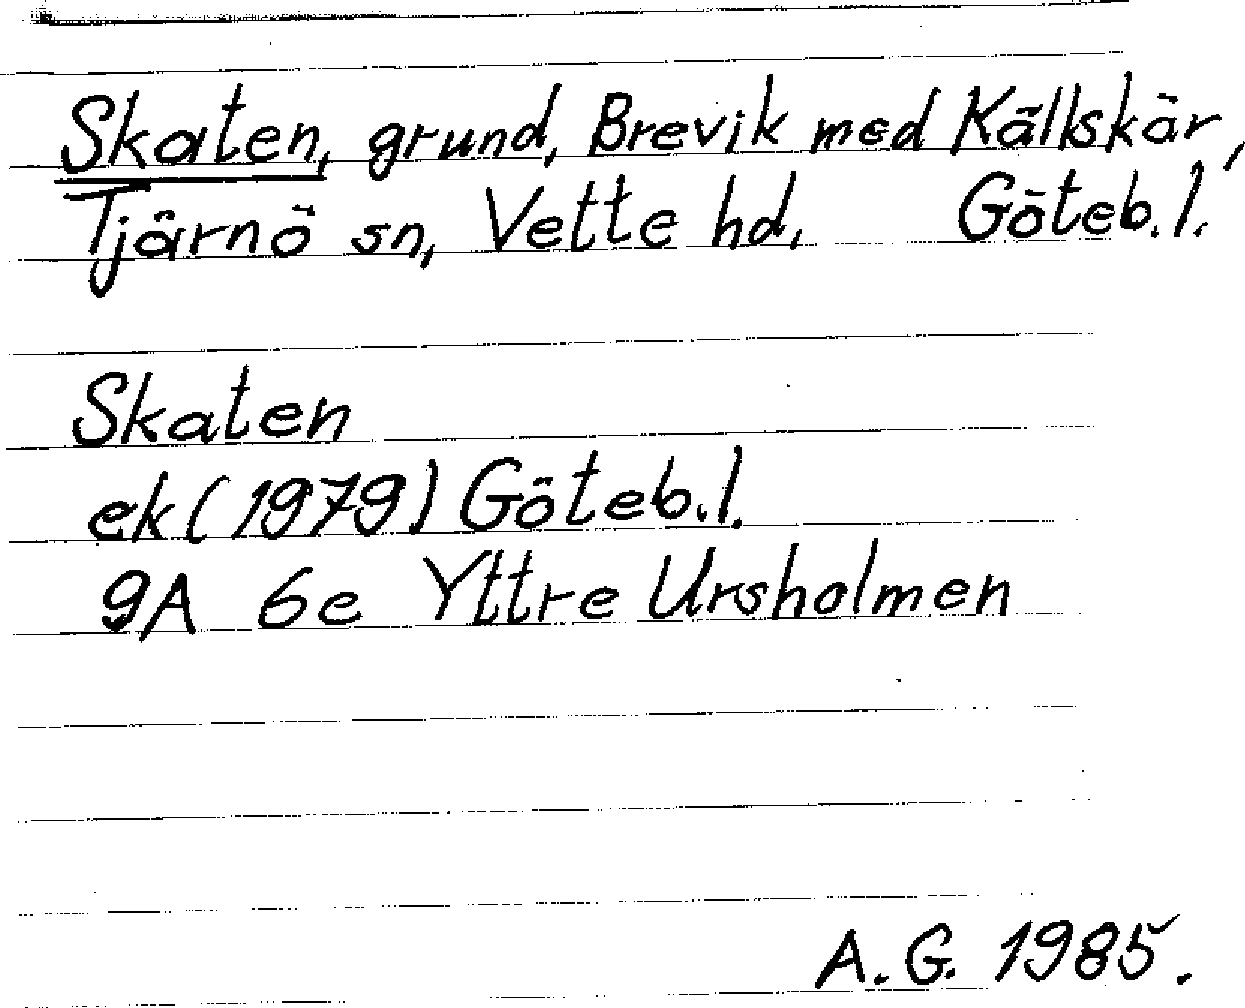 Skaten, grund, Brevik med Källskär,
Tjärnö sn, Vette hd, Göteb.l.
Skaten
ek (1979) Göteb.l.
9A 6e Yttre Ursholmen
A.G. 1985.